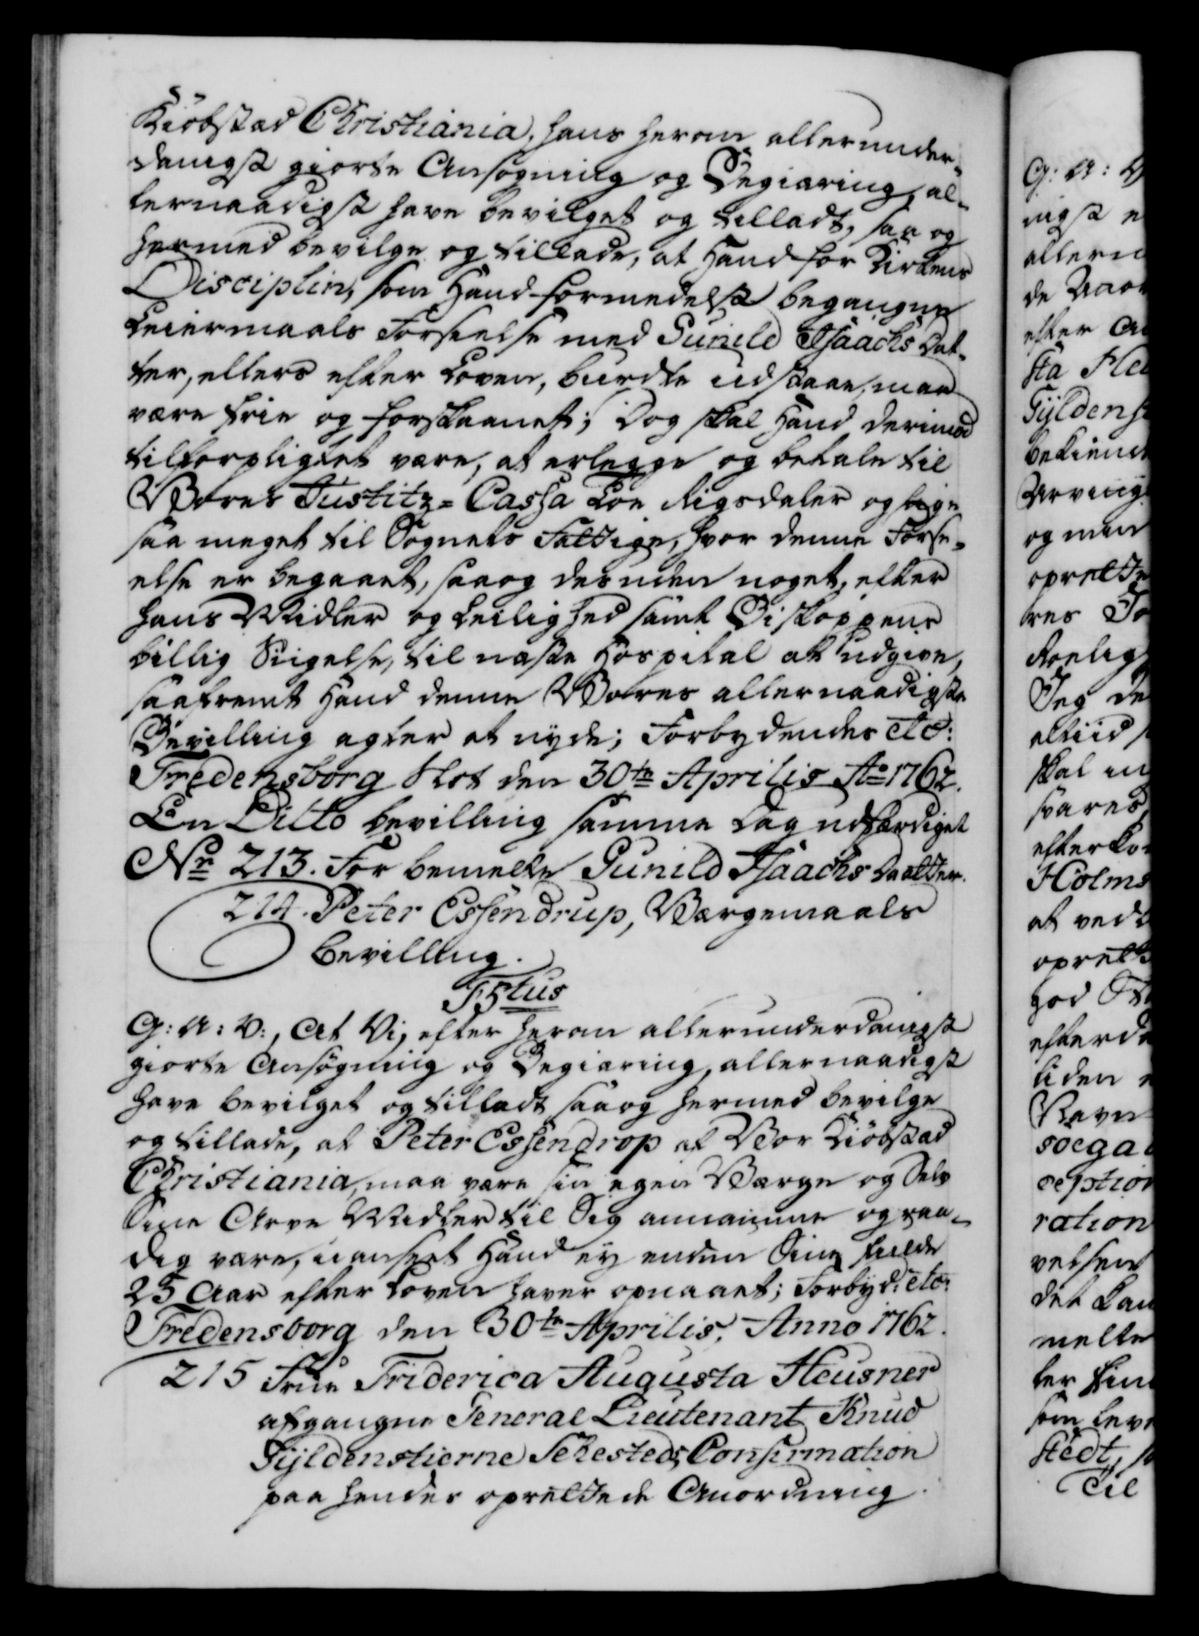 Kiöbstad Christiania, hans herom allerunder-
danigst giorte Ansøgning og Begiæring, al-
lernaadigst have bevilget og tilladt, saa og
hermed bevilge og tillade, at Hand for Kirkens
Disciplin, som Hand formedelst begangne
Leiermaals Forseelse med Gunild Isaachs Dat-
ter, ellers efter Loven, burdte udstaae, maa
være frie og forskaanet; Dog skal Hand derimod
tilforpligtet være, at erlegge og betale til
Vores Justitz-Cassa Toe Rigsdaler og lige
saa meget til Sognets Fattige, hvor denne Forse-
else er begaaet, saa og desuden noget, efter
hans Midler og Leilighed samt Biskoppens
billig Sigelse, til næste Hospital at udgive,
saafremt Hand denne Vores allernaadigste
Bevilling agter at nyde; Forbydendes etc:
Fredensborg Slot den 30te Aprilis Ao 1762.
En Ditto bevilling samme Dag udfærdiget
No 213. For bemelte Gunild Isaachs Daatter.
214. Peter Essendrup, Værgemaals
bevilling.
F5tus
G: A: V:, At Vi, efter herom allerunderdanigst
giorte Ansøgning og Begiæring, allernaadigst
have bevilget og tilladt saa og hermed bevilge
og tillade, at Peter Essendrop af Vor Kiöbstad
Christiania, maa være sin egen Værge og Selv
Sine Arve Midler til Sig annamme og raa-
dig være, uanseet Hand ey endnu Sine fulde
25 Aar efter Loven haver opnaaet; Forbyd: etc:
Fredensborg den 30te Aprilis, Anno 1762.
215 Frue Friderica Augusta Heusner
afgangne General Lieutenant Knud
Gyldenstierne Sehesteds, Confirmation
paa hendes oprettede Anordning.
G: A: V
nigst e
allern
de Anor
efter
sta
Gyldens
bekiend
Arving
og min
oprette
res
Roelig
Jeg de
altiid
skal
svares,
efterko
Holms
at ved
oprett
god
efterd
tiden
Navn
soegat
ception
ration
velsen
det kan
melte
ler
som leve
stedt,
Til